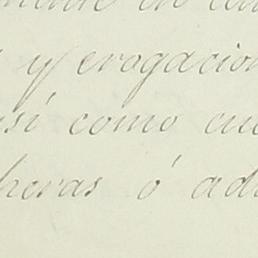 y erogacion
así como cu
heras ó ad